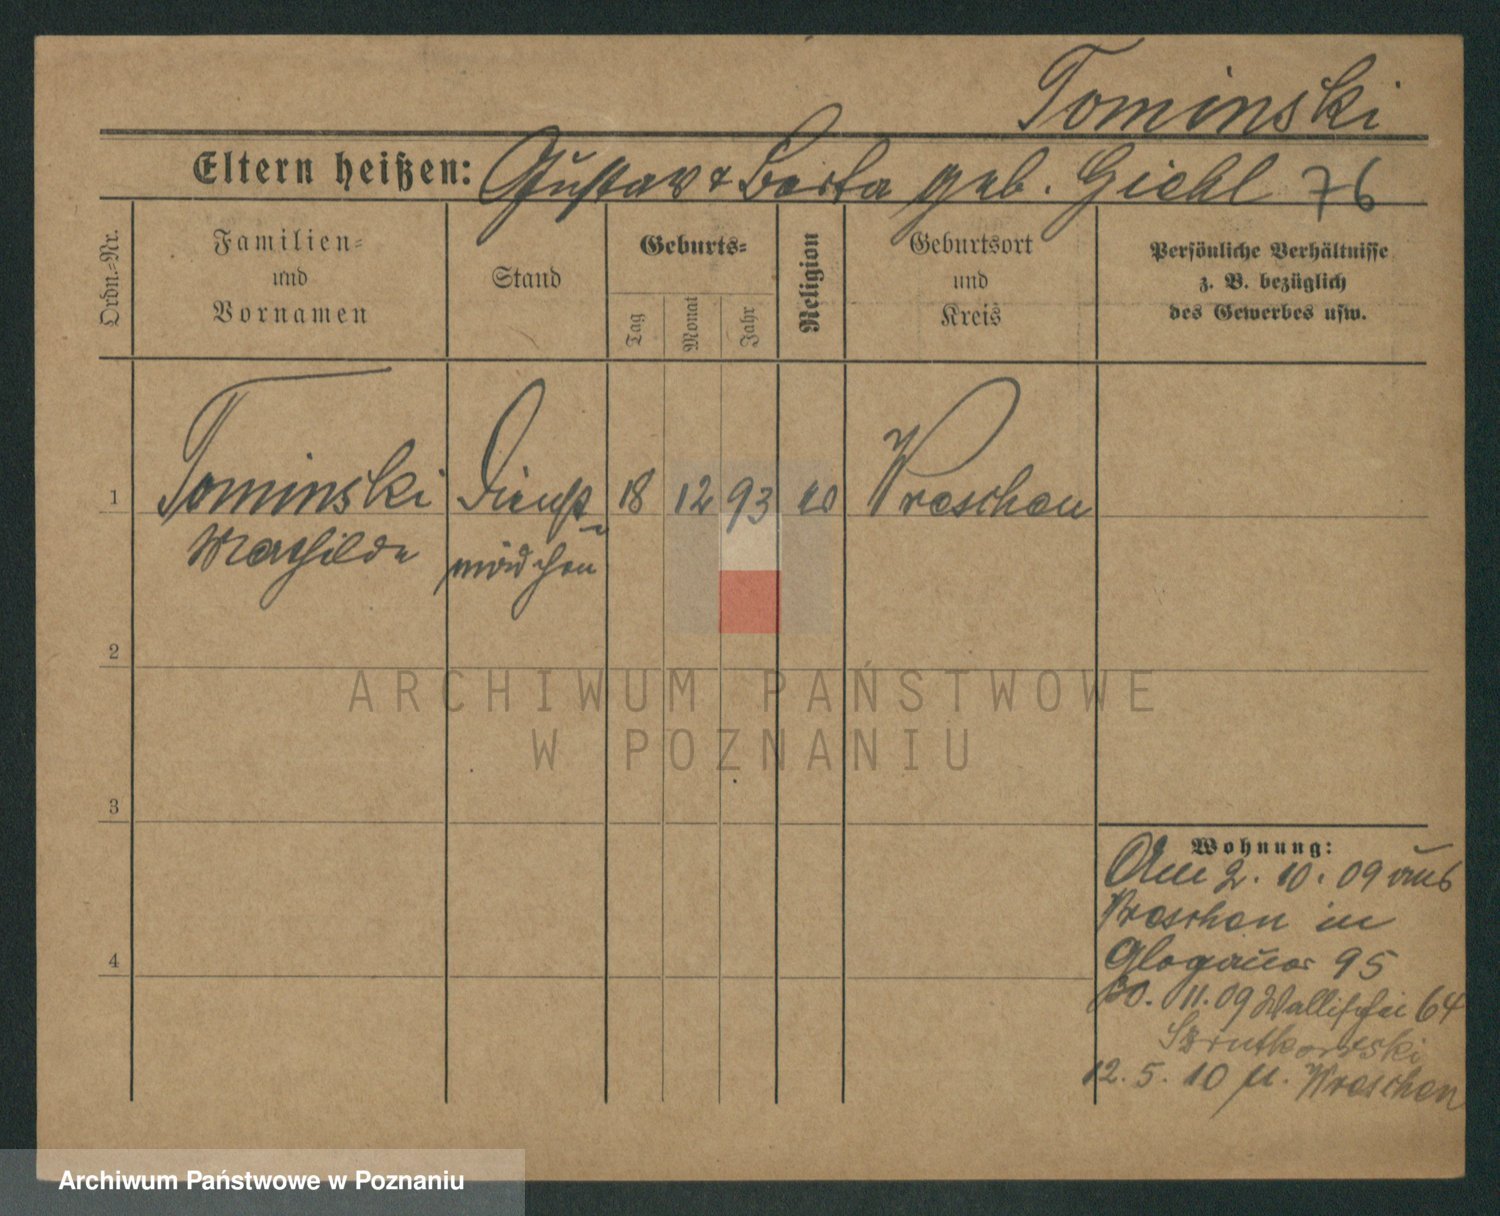 Tominski
Eltern heißen: Gustav & Berta geb. Giehl 76
Ordn.=Nr.
Familien=
und
Vornamen
Stand
Geburts=
Tag
Monat
Jahr
Religion
Geburtsort
und
Kreis
Persönliche Verhältnisse
z. B. bezüglich
des Gewerbes usw.
1 Tominski Dienst= 18 12 93 Wreschen
Mathilde mädchen
2
ARCHIWUM PAŃSTWOWE
W POZNANIU
3
Wohnung:
Am 2. 10. 09 aus
Wreschen in
Glogauer 95
4
30. 11. 09 Wallischei 64
12. 5. 10 n. Wreschen
Archiwum Państwowe w Poznaniu